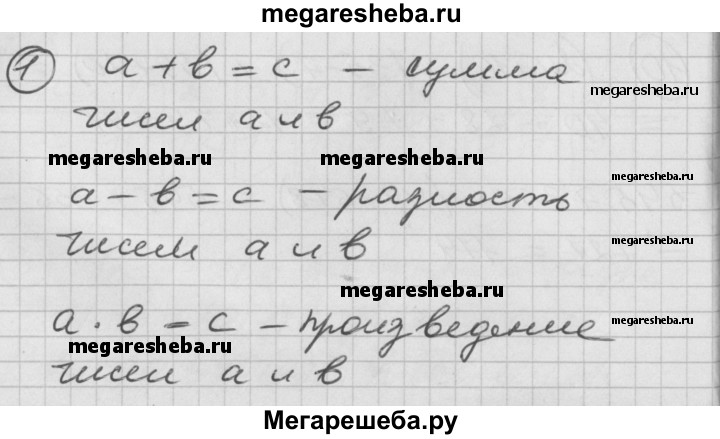 megaresheba.ru
1 a + в = с – сумма
megaresheba.ru
чисел а и в
megaresheba.ru megaresheba.ru
megaresheba.ru
а – в = с – разность
чисел а и в
megaresheba.ru
megaresheba.ru
а · в = с – произведение
megaresheba.ru
чисел а и в
Мегарешеба.ру